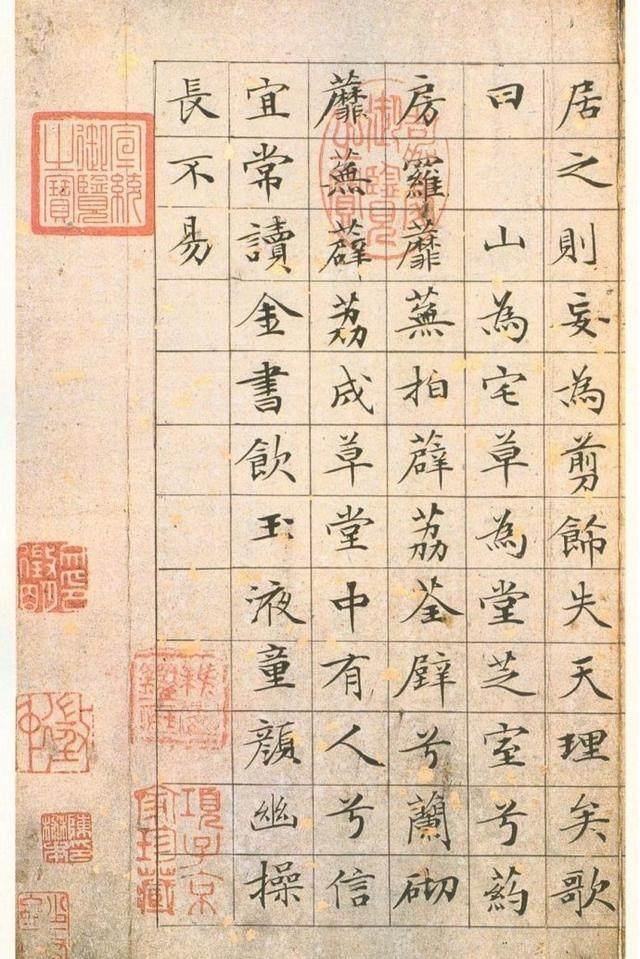 居之則妄為剪飾失天理矣歌
曰 山為宅草為堂芝室兮葯
房羅蘼蕪拍薜荔荃壁兮蘭砌
蘼蕪薜荔成草堂中有人兮信
宜常讀金書飲玉液童顏幽操
長不易
宣統御覽之寶
項子京家珍藏